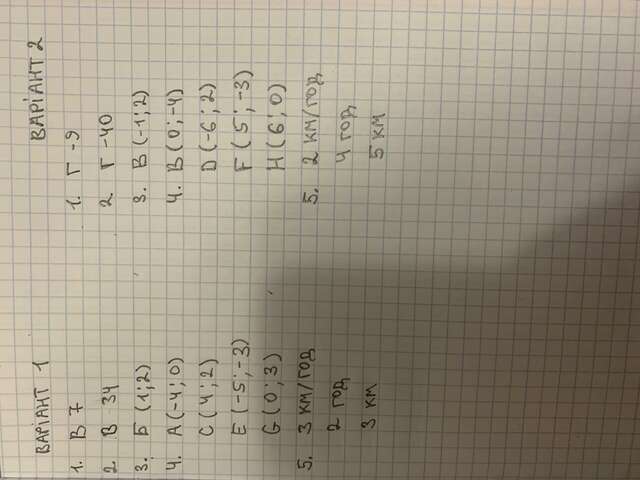 ВАРІАНТ 1
1. В 7
2. В 34
3. Б (1; 2)
4. А (-4; 0)
С (4; 2)
Е (-5; -3)
G (0; 3)
5. 3 км/год
2 год
3 км
ВАРІАНТ 2
1. Г -9
2. Г -40
3. В (-1; 2)
4. В (0; -4)
D (-6; 2)
F (5; -3)
H (6; 0)
5. 2 км/год
4 год
5 км